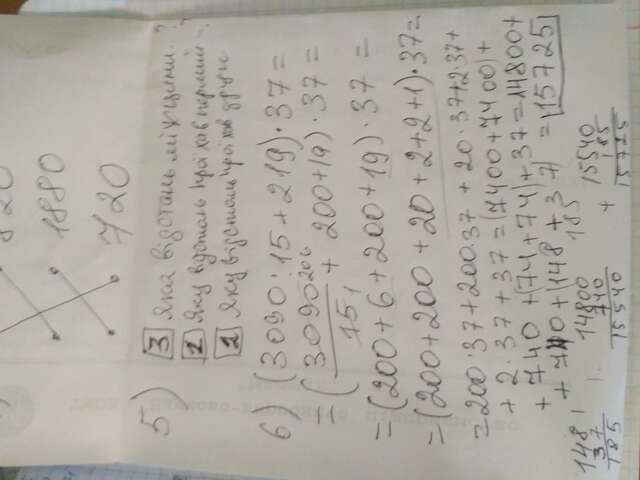 1880
720
5) 3 Яка відстань між ними..?
1 Яку відстань проїхав перший -?
2 Яку відстань проїхав друге
6) (3090:15+219)·37=
=(3090 206/15 1 + 200+19)·37=
=(200+6+200+19)·37=
=(200+200+20+2+2+1)·37=
=200·37+200·37+20·37+2·37+
+2·37+37=(7400+7400)+
+740+(74+74)+37=14800+
+740+(148+37)=15725
148
37
185
14800
740
15540
185
+15540
185
15725